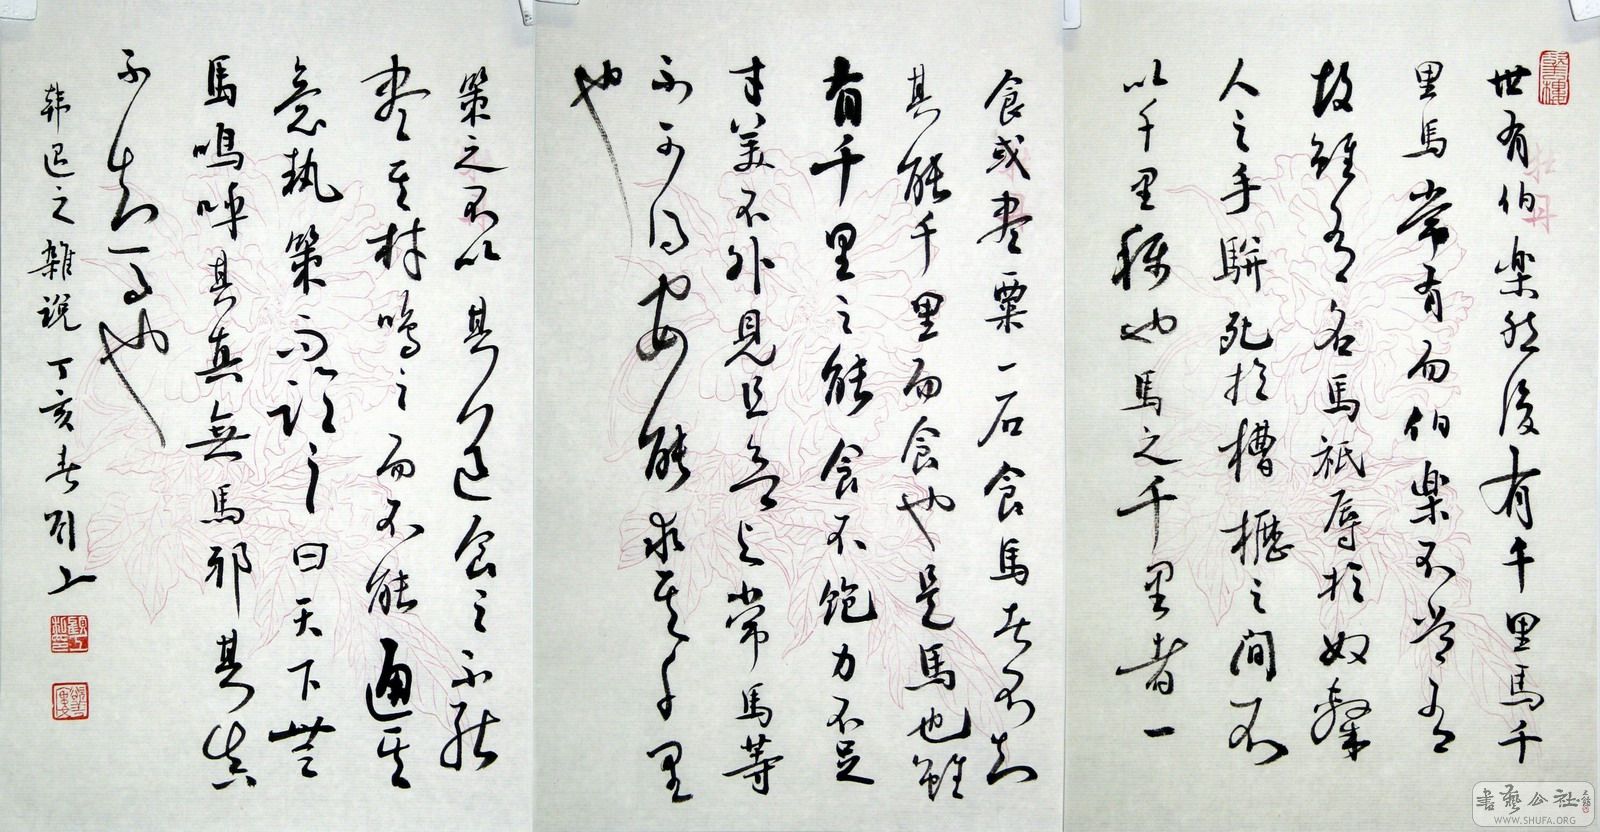 世有伯楽然後有千里馬千
里馬常有而伯楽不常有
故雖有名馬祇辱於奴隸
人之手駢死於槽櫪之間不
以千里稱也馬之千里者一
食或盡粟一石食馬者不知
其能千里而食也是馬也雖
有千里之能食不飽力不足
才美不外見且欲與常馬等
不可得安能求其千里
也
策之不以其道食之不能
盡其材鳴之而不能通其
意執策而臨之曰天下無
馬嗚呼其真無馬邪其真
不知馬也
韩退之雜说 丁亥春 顾工
牡丹
書藝公社
WWW.SHUFA.ORG